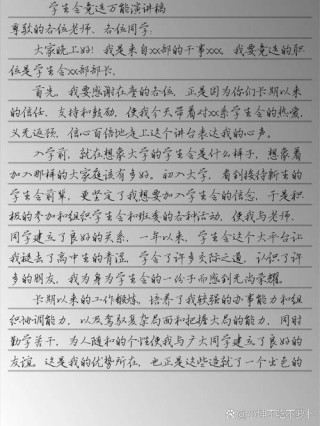 学生会竞选万能演讲稿
尊敬的各位老师、各位同学:
大家晚上好!我是来自xx部的干事xxx,我要竞选的职
位是学生会xx部部长。
首先,我要感谢在座的各位,正是因为你们长期以来
的信任、支持和鼓励,使我今天带着对xx系学生会的热爱,
义无返顾,信心百倍地走上这个讲台表达我的心声。
入学前,就在想象大学的学生会是什么样子,想象着
加入那样的大家庭该有多好。初入大学,看到接待新生的
学生会前辈,更坚定了我想要加入学生会的信念,于是积
极的参加和组织学生会和班委的各种活动,使我与老师、
同学建立了良好的关系,一年以来,学生会这个大平台让
我褪去了高中生的青涩,学会了许多交际之道,认识了许
多的朋友,我为身为学生会的一份子而感到无尚荣耀。
长期以来的工作锻炼,培养了我较强的办事能力和组
织协调能力,以及驾驭复杂局面和把握大局的能力,同时
勤学苦干,为人随和的个性使我与广大同学建立了良好的
友谊。这是我的优势所在,也正是这些造就了一个出色的